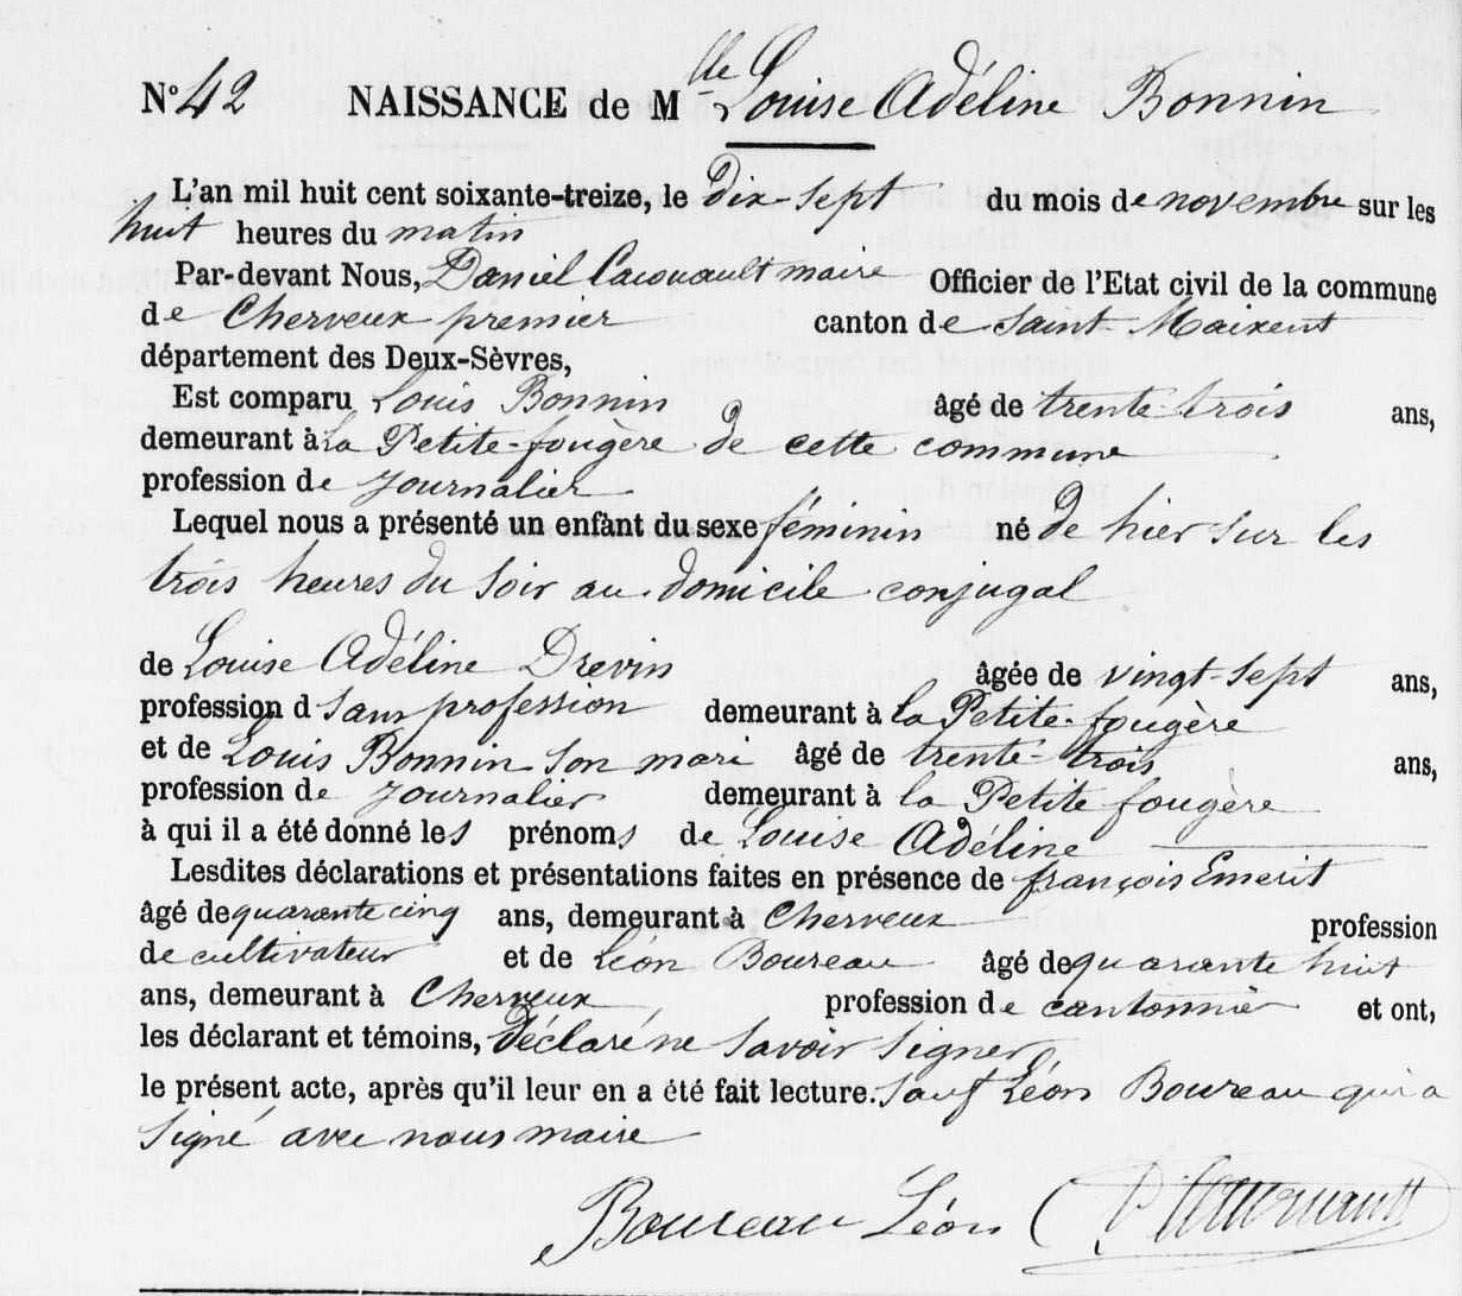 N° 42 NAISSANCE de Mlle Louise Adéline Bonnin
L'an mil huit cent soixante-treize, le dix-sept du mois de novembre sur les
huit heures du matin
Par-devant Nous, Daniel Cacouault maire Officier de l'Etat civil de la commune
de Cherveux premier canton de Saint-Maixent
département des Deux-Sèvres,
Est comparu Louis Bonnin âgé de trente-trois ans,
demeurant à la Petite-fougère de cette commune
profession de journalier
Lequel nous a présenté un enfant du sexe féminin né de hier sur les
trois heures du soir au domicile conjugal
de Louise Adéline Drevin âgée de vingt-sept ans,
profession d sans profession demeurant à la Petite-fougère
et de Louis Bonnin son mari âgé de trente-trois ans,
profession de journalier demeurant à la Petite fougère
à qui il a été donné les prénoms de Louise Adéline
Lesdites déclarations et présentations faites en présence de françois Emerit
âgé de quarante cinq ans, demeurant à Cherveux profession
de cultivateur et de Léon Boureau âgé de quarante huit
ans, demeurant à Cherveux profession de cantonnier et ont,
les déclarant et témoins, déclaré ne savoir signer,
le présent acte, après qu'il leur en a été fait lecture. sauf Léon Boureau qui a
signé avec nous maire
Boureau Léon D Cacouault